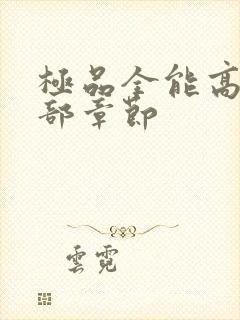 極品全能高
部章節
雲霓